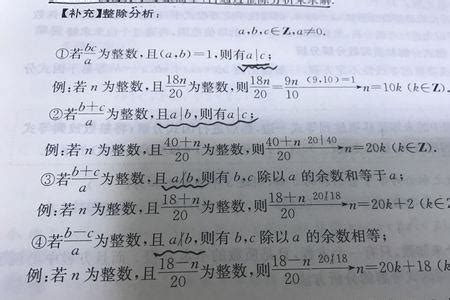 【补充】整除分析:
a,b,c∈Z,a≠0.
①若\frac{bc}{a}为整数,且(a,b)=1,则有a|c;
例:若 n 为整数,且\frac{18n}{20}为整数,则\frac{18n}{20}=\frac{9n}{10}\xrightarrow{(9,10)=1}n=10k (k∈Z).
②若\frac{b+c}{a}为整数,且a|b,则有a|c;
例:若 n 为整数,且\frac{40+n}{20}为整数,则\frac{40+n}{20}\xrightarrow{20|40}n=20k (k∈Z).
③若\frac{b+c}{a}为整数,且a∤b,则有b,c除以a的余数和等于a;
例:若 n 为整数,且\frac{18+n}{20}为整数,则\frac{18+n}{20}\xrightarrow{20∤18}n=20k+2 (k∈Z
④若\frac{b-c}{a}为整数,且a∤b,则有b,c除以a的余数相等;
例:若 n 为整数,且\frac{18-n}{20}为整数,则\frac{18-n}{20}\xrightarrow{20∤18}n=20k+18 (k